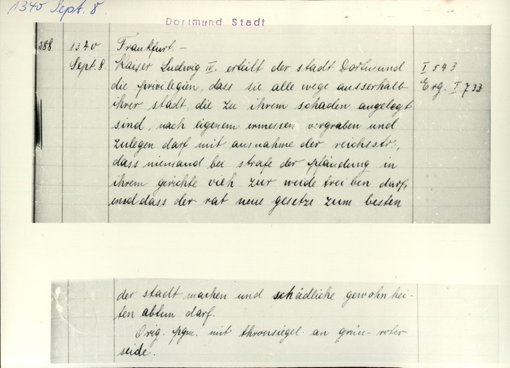 1340 Sept. 8.
Dortmund Stadt
288 1340 Frankfurt. –
Sept. 8. Kaiser Ludwig IV. erteilt der stadt Dortmund I 543
die privilegien, dass sie alle wege ausserhalb Erg. I 733
ihrer stadt, die zu ihrem schaden angelegt
sind, nach eigenem ermessen vergraben und
zulegen darf mit ausnahme der reichsstr.,
dass niemand bei strafe der pfändung in
ihrem gerichte vieh zur weide treiben darf,
und dass der rat neue gesetze zum besten
der stadt machen und schädliche gewohnhei-
ten abtun darf.
Orig. pgm. mit thronsiegel an grün-roter
seide.